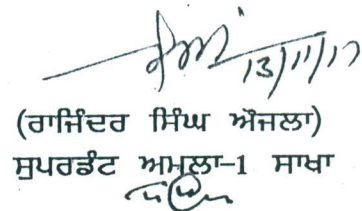 13/11/17
(ਰਾਜਿੰਦਰ ਸਿੰਘ ਔਜਲਾ)
ਸੁਪਰਡੰਟ ਅਮਲਾ-1 ਸਾਖਾ